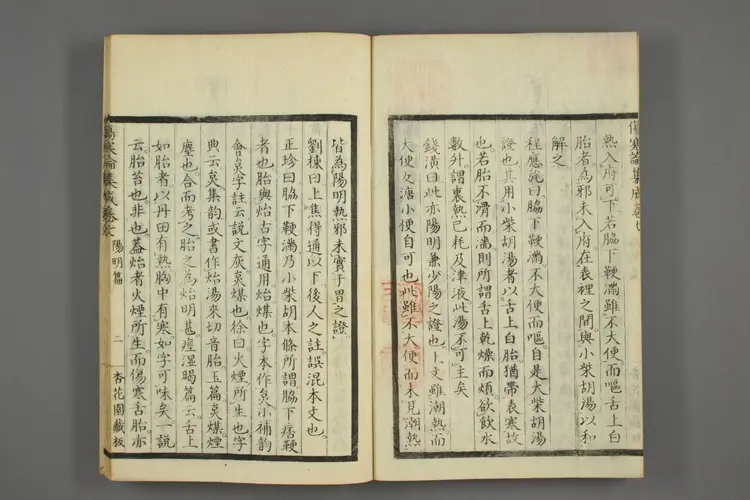 傷寒論集成卷七
熱入府可下若脇下鞕滿雖不大便而嘔舌上白
胎者為邪未入府在表裡之間與小柴胡湯以和
解之
程應旄曰脇下鞕滿不大便而嘔自是大柴胡湯
證也其用小柴胡湯者以舌上白胎猶帶表寒故
也若胎不滑而濇則所謂舌上乾燥而煩欲飲水
數升謂裏熱已耗及津液此湯不可主矣
錢潢曰此亦陽明兼少陽之證也上文雖潮熱而
大便反溏小便自可也此雖不大便而未見潮熱
皆為陽明熱邪未實于胃之證
劉棟曰上焦得通以下後人之註誤混本文也
正珍曰脇下鞕滿乃小柴胡本條所謂脇下痞鞕
者也胎與炲古字通用炲煤也字本作炱小補韵
會炱字註云說文灰炱煤也徐曰火煙所生也字
典云炱集韵或書作炲湯來切音胎玉篇炱煤煙
塵也合而考之胎之為炲明甚痙濕暍篇云舌上
如胎者以丹田有熱胸中有寒如字可味矣一說
云胎苔也非也蓋炲者火煙所生而傷寒舌胎亦
傷寒論集成卷七　陽明篇　二　杏花園藏板